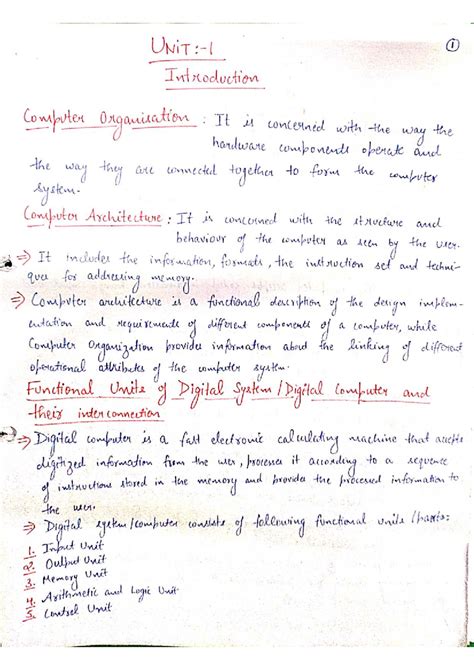 UNIT:-1
1
Introduction
Computer Organisation : It is concerned with the way the
hardware components operate and
the way they are connected together to form the computer
system.
Computer Architecture : It is concerned with the structure and
behaviour of the computer as seen by the user.
⇒ It includes the information, formats, the instruction set and techni-
ques for addressing memory.
⇒ Computer architecture is a functional description of the design implem-
entation and requirements of different components of a computer, while
Computer Organization provides information about the linking of different
operational attributes of the computer system.
Functional Units of Digital System / Digital Computer and
their interconnection
⇒ Digital computer is a fast electronic calculating machine that accepts
digitized information from the user, processes it according to a sequence
of instructions stored in the memory and provides the processed information to
the user.
⇒ Digital system/computer consists of following functional units/parts:
1. Input Unit
2. Output Unit
3. Memory Unit
4. Arithmetic and Logic Unit
5. Control Unit